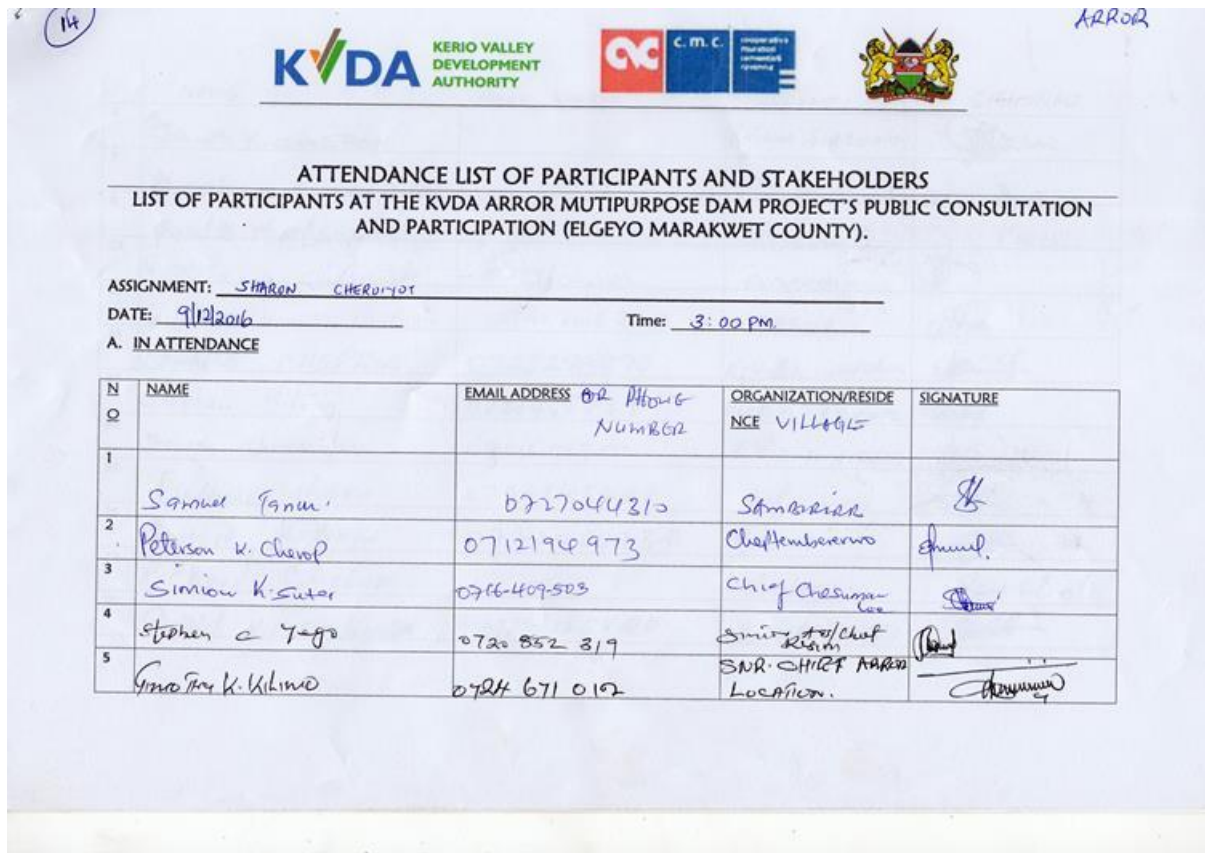 14
ARROR
KVDA KERIO VALLEY
DEVELOPMENT
AUTHORITY
c. m. c. cooperativa
muratori
cementisti
ravenna
ATTENDANCE LIST OF PARTICIPANTS AND STAKEHOLDERS
LIST OF PARTICIPANTS AT THE KVDA ARROR MUTIPURPOSE DAM PROJECT'S PUBLIC CONSULTATION
AND PARTICIPATION (ELGEYO MARAKWET COUNTY).
ASSIGNMENT: SHARON CHERUIYOT
DATE: 9/12/2016 Time: 3:00 PM.
A. IN ATTENDANCE
NO NAME EMAIL ADDRESS OR PHONE NUMBER ORGANIZATION/RESIDENCE VILLAGE SIGNATURE
1 Samuel 0727044310
2 Peterson K. Cherop 0712194973
3 Simion K. Suter 0716-409-503 Chief Chesuman
4 Stephen C Yego 0720 852 319
5 Timothy K. Kilimo 0724 671 012 SNR. CHIEF ARROR
LOCATION.